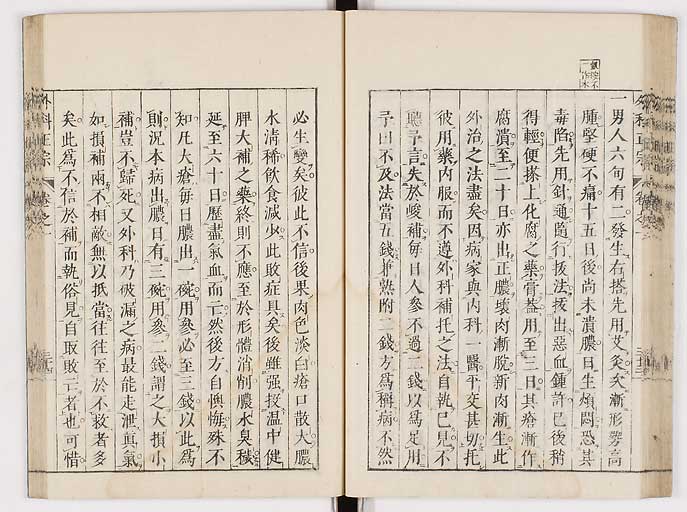 一男人六旬有二發生右搭先用艾灸灸漸形勢高
腫堅硬不痛十五日後尚未潰膿日生煩悶恐其
毒陷先用針通隨行拔法拔出惡血鍾許已後稍
得輕便搽上化腐之藥膏蓋用至三日其瘡漸作
腐潰至二十日亦出正膿壞肉漸脫新肉漸生此
外治之法盡矣因病家與內科一醫平交甚切托
彼用藥內服而不遵外科補托之法自執己見不
聽予言失於峻補每日人參不過一錢以為足用
予曰不及法當五錢兼熟附二錢方為稱病不然
必生變矣彼此不信後果肉色淡白瘡口散大膿
水清稀飲食減少此敗症具矣後雖强投溫中健
脾大補之藥終則不應至於形體消削膿水臭穢
延至六十日歷盡氣血而亡然後方自懊悔殊不
知凡大瘡每日膿出一碗用參必至三錢以此為
則況本病出膿日有三碗用參一錢謂之大損小
補豈不歸死又外科乃破漏之病最能走泄真氣
如損補兩不相敵無以抵當往往至於不救者多
矣此為不信於補而執俗見自取敗亡者也可惜
外科正宗 卷之一